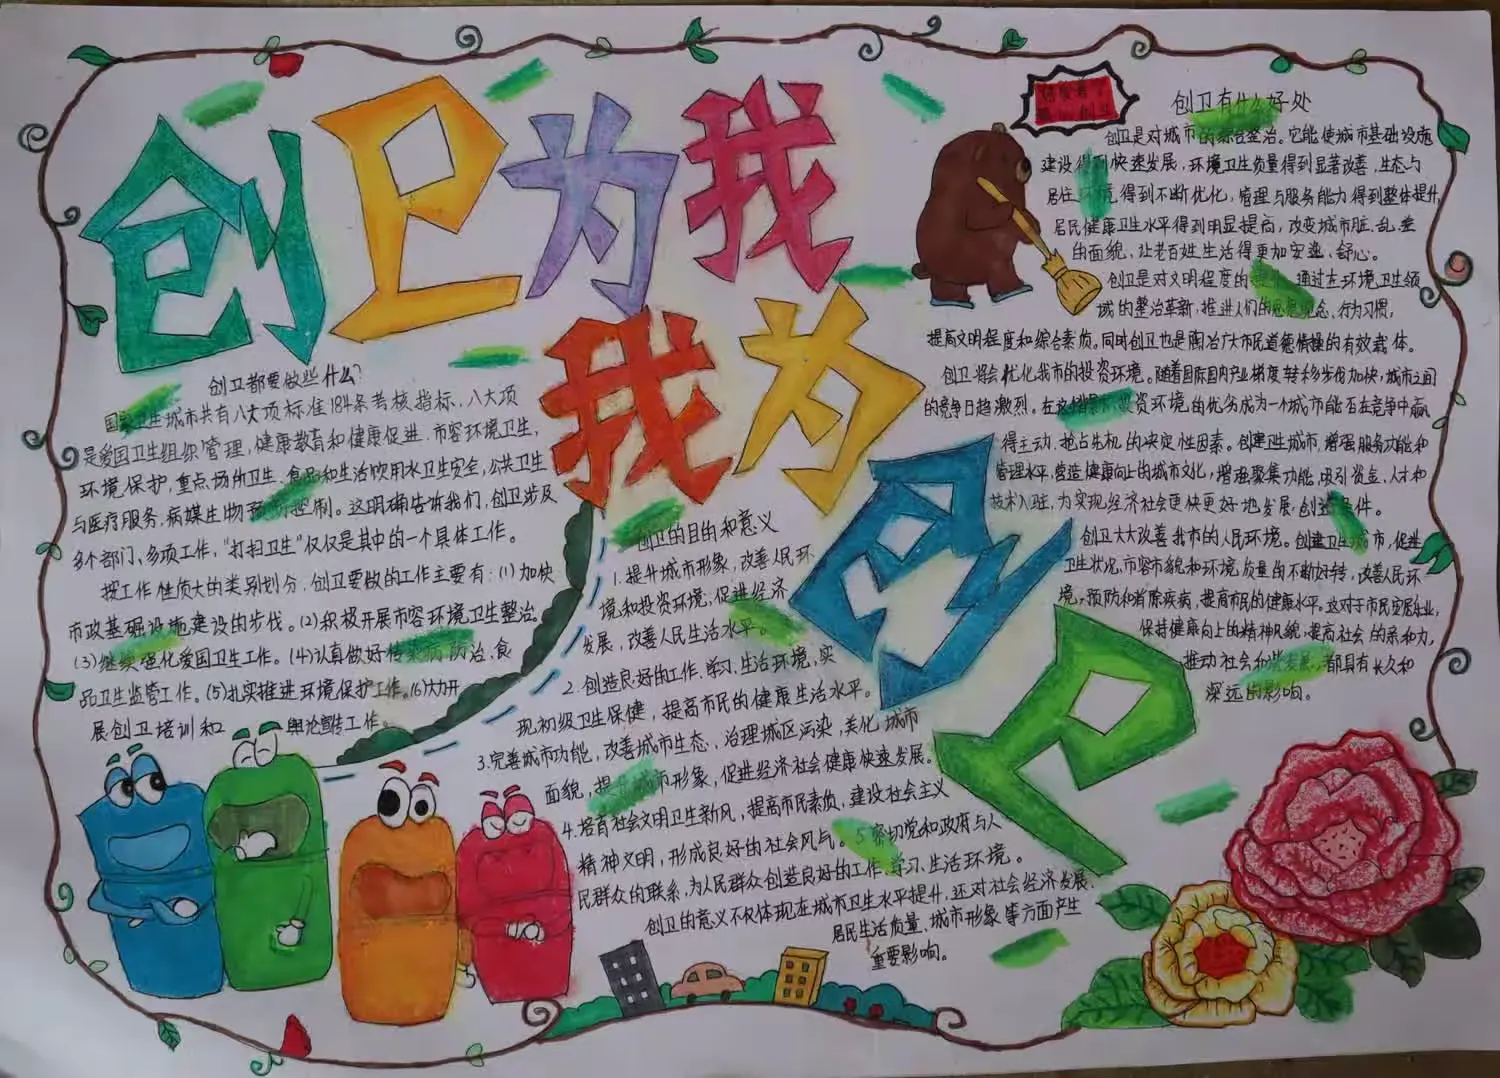 创卫为我
我为创卫
创卫都要做些什么?
国家卫生城市共有八大项标准184条考核指标、八大项
是爱国卫生组织管理,健康教育和健康促进、市容环境卫生,
环境保护,重点场所卫生、食品和生活饮用水卫生安全,公共卫生
与医疗服务,病媒生物预防控制。这明确告诉我们,创卫涉及
多个部门、多项工作,"打扫卫生"仅仅是其中的一个具体工作。
按工作性质大的类别划分,创卫要做的工作主要有:(1)加快
市政基础设施建设的步伐。(2)积极开展市容环境卫生整治。
(3)继续强化爱国卫生工作。(4)认真做好传染病防治、食
品卫生监管工作。(5)扎实推进环境保护工作。(6)大力开
展创卫培训和舆论宣传工作。
创卫的目的和意义
1.提升城市形象,改善人民环
境和投资环境,促进经济
发展,改善人民生活水平。
2.创造良好的工作、学习、生活环境,实
现初级卫生保健,提高市民的健康生活水平。
3.完善城市功能,改善城市生态、治理城区污染,美化城市
面貌,提升城市形象,促进经济社会健康快速发展。
4.培育社会文明卫生新风,提高市民素质,建设社会主义
精神文明,形成良好的社会风气。5密切党和政府与人
民群众的联系,为人民群众创造良好的工作、学习、生活环境。
创卫的意义不仅体现在城市卫生水平提升,还对社会经济发展、
居民生活质量、城市形象等方面产生
重要影响。
创卫有什么好处
创卫是对城市的综合整治。它能使城市基础设施
建设得到快速发展,环境卫生质量得到显著改善,生态与
居住环境得到不断优化,管理与服务能力得到整体提升,
居民健康卫生水平得到明显提高,改变城市脏、乱、差
的面貌,让老百姓生活得更加安逸、舒心。
创卫是对文明程度的,通过在环境卫生领
域的整治革新,推进人们的思想观念、行为习惯,
提高文明程度和综合素质。同时创卫也是陶冶广大市民道德情操的有效载体。
创卫将会优化我市的投资环境。随着国际国内产业梯度转移步伐加快,城市之间
的竞争日趋激烈。在这投资环境的优劣成为一个城市能否在竞争中赢
得主动、抢占先机的决定性因素。创建卫生城市,增强服务功能和
管理水平,营造健康向上的城市文化,增强聚集功能,吸引资金、人才和
技术入驻,为实现经济社会更快更好地发展,创造条件。
创卫大大改善我市的人民环境。创建卫生城市,促进
卫生状况、市容市貌和环境质量的不断好转,改善人民环
境,预防和消除疾病,提高市民的健康水平。这对于市民安居乐业,
保持健康向上的精神风貌,提高社会的亲和力,
推动社会和谐发展,都具有长久和
深远的影响。